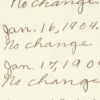 No change.
Jan. 16, 1904.
No change.
Jan. 17, 190
No change.